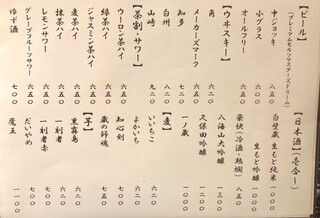 【ビール】
(プレミアムモルツマスターズドリーム)
中ジョッキ 八五〇
小グラス 六五〇
オールフリー 五〇〇
【ウヰスキー】
角 六二〇
メーカーズマーク 七五〇
知多 七五〇
白州 九二〇
山崎 九二〇
【茶割・サワー】
ウーロン茶ハイ 六五〇
ジャスミン茶ハイ 六五〇
緑茶ハイ 六五〇
麦茶ハイ 六五〇
抹茶ハイ 六五〇
レモンサワー 六五〇
グレープフルーツサワー 六五〇
ゆず酒 七〇〇
【日本酒】(壱合〜)
白壁蔵 生もと純米 一一〇〇
生もと吟醸
豪快(冷酒/熱燗) 八五〇
八海山大吟醸
久保田吟醸
一ノ蔵
【麦】
いいちこ 六二〇
よかいち 六二〇
知心剣 六二〇
蔵の師魂
【芋】
黒霧島 六二〇
一刻者 六二〇
一刻者赤 七〇〇
だいやめ 七〇〇
魔王 一〇〇〇